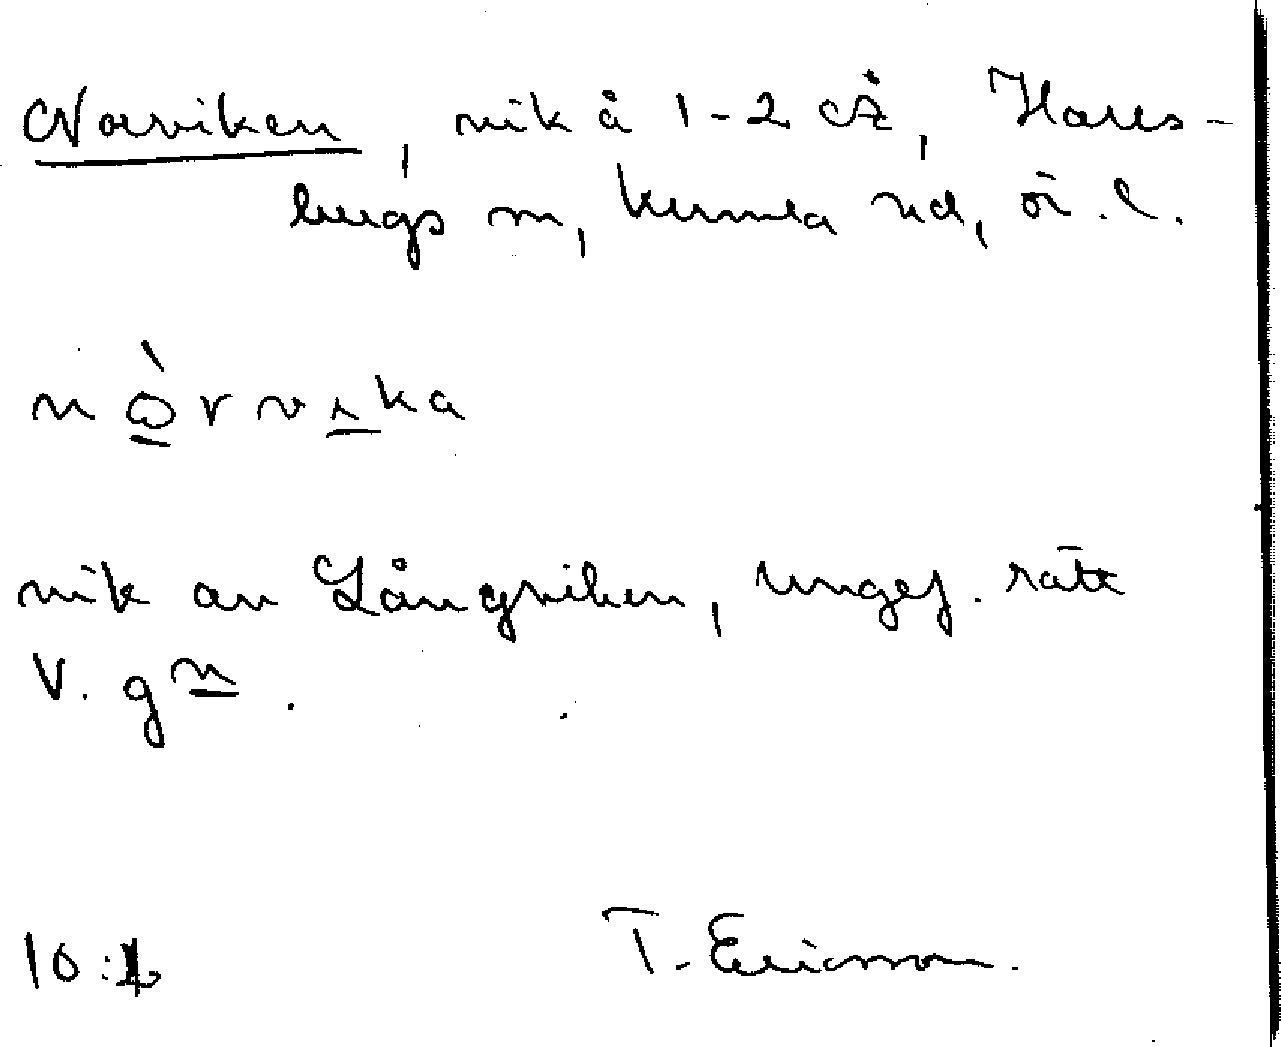 Norviken, vik å 1-2 cÅ, Halls-
bergs sn, kumla hd, ör. l.
nòrvika
vik av Långviken, ungef. rätt
V. gm.
10:1 T. Ericsson.